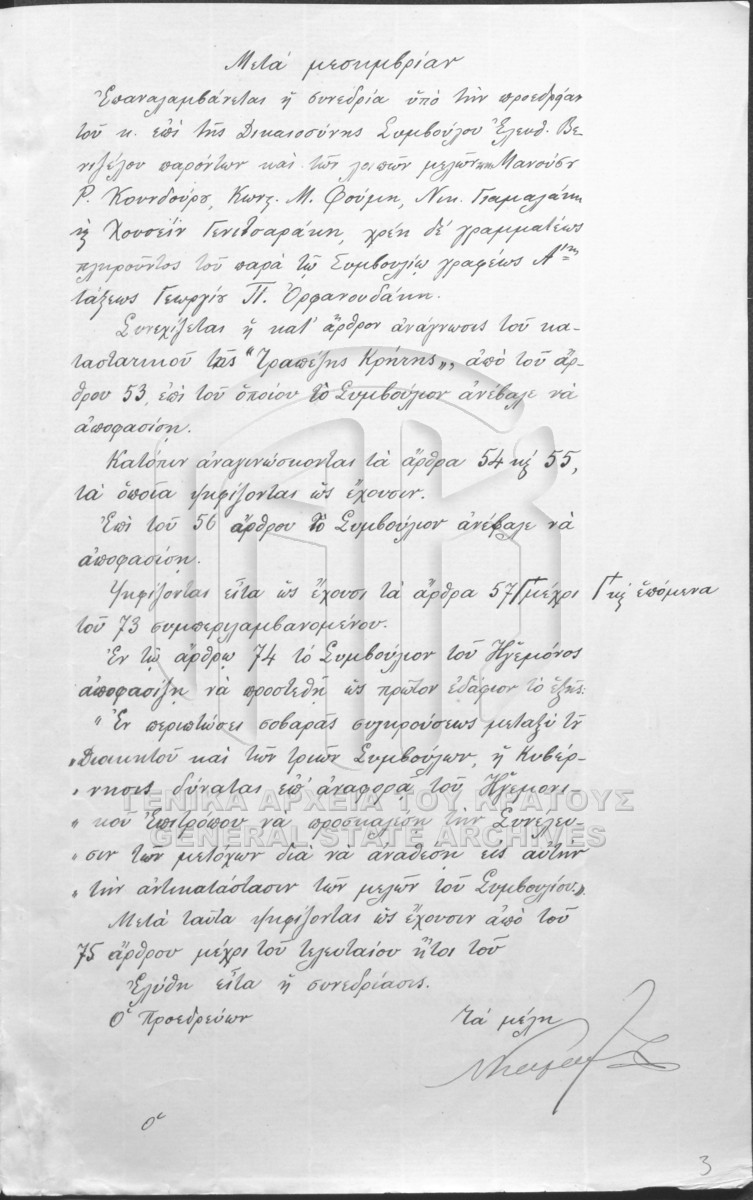 Μετά μεσημβρίαν
Ἐπαναλαμβάνεται ἡ συνεδρία ὑπό τήν προεδρείαν
τοῦ κ. ἐπί τῆς Δικαιοσύνης Συμβούλου Ἐλευθ. Βε-
νιζέλου παρόντων καί τῶν λοιπῶν μελῶν κκ Μανούσου
Ρ. Κουνδούρου, Κωνς. Μ. Φούμη, Νικ. Γιαμαλάκη
κϳ Χουσεΐν Γενιτσαράκη, χρέη δέ γραμματέως
πληροῦντος τοῦ παρά τῷ Συμβουλίῳ γραφέως Α΄ης
τάξεως Γεωργίου Π. Ὀρφανουδάκη.
Συνεχίζεται ἡ κατ' ἄρθρον ἀνάγνωσις τοῦ κα-
ταστατικοῦ τῆς "Τραπέζης Κρήτης„, ἀπό τοῦ ἄρ-
θρου 53, ἐπί τοῦ ὁποίου τό Συμβούλιον ἀνέβαλε νά
ἀποφασίσῃ.
Κατόπιν ἀναγινώσκονται τά ἄρθρα 54 κϳ 55,
τά ὁποῖα ψηφίζονται ὡς ἔχουσιν.
Ἐπί τοῦ 56 ἄρθρου τό Συμβούλιον ἀνέβαλε νά
ἀποφασίσῃ.
Ψηφίζονται εἶτα ὡς ἔχουσι τά ἄρθρα 57 Γ+ μέχρι Γ+ κϳ ἑπόμενα
τοῦ 73 συμπεριλαμβανομένου.
Ἐν τῷ ἄρθρῳ 74 τό Συμβούλιον τοῦ Ἡγεμόνος
ἀποφασίζει νά προστεθῇ ὡς πρῶτον ἐδάφιον τό ἑξῆς:
"Ἐν περιπτώσει σοβαρᾶς συγκρούσεως μεταξύ τοῦ
"Διοικητοῦ καί τῶν τριῶν Συμβούλων, ἡ Κυβέρ-
"νησις δύναται ἐπ' ἀναφορᾷ τοῦ Ἡγεμονι-
"κοῦ Ἐπιτρόπου νά προσκαλέσῃ τήν Συνέλευ-
"σιν τῶν μετόχων διά νά ἀναθέσῃ εἰς αὐτήν
"τήν ἀντικατάστασιν τῶν μελῶν τοῦ Συμβουλίου„.
Μετά ταῦτα ψηφίζονται ὡς ἔχουσιν ἀπό τοῦ
75 ἄρθρου μέχρι τοῦ τελευταίου ἤτοι τοῦ
Ἐλύθη εἶτα ἡ συνεδρίασις.
Ὁ Προεδρεύων Τά μέλη
Ὁ
3
ΓΕΝΙΚΑ ΑΡΧΕΙΑ ΤΟΥ ΚΡΑΤΟΥΣ
GENERAL STATE ARCHIVES